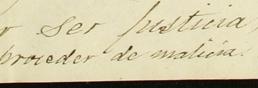 ser justicia,
proceder de malicia.